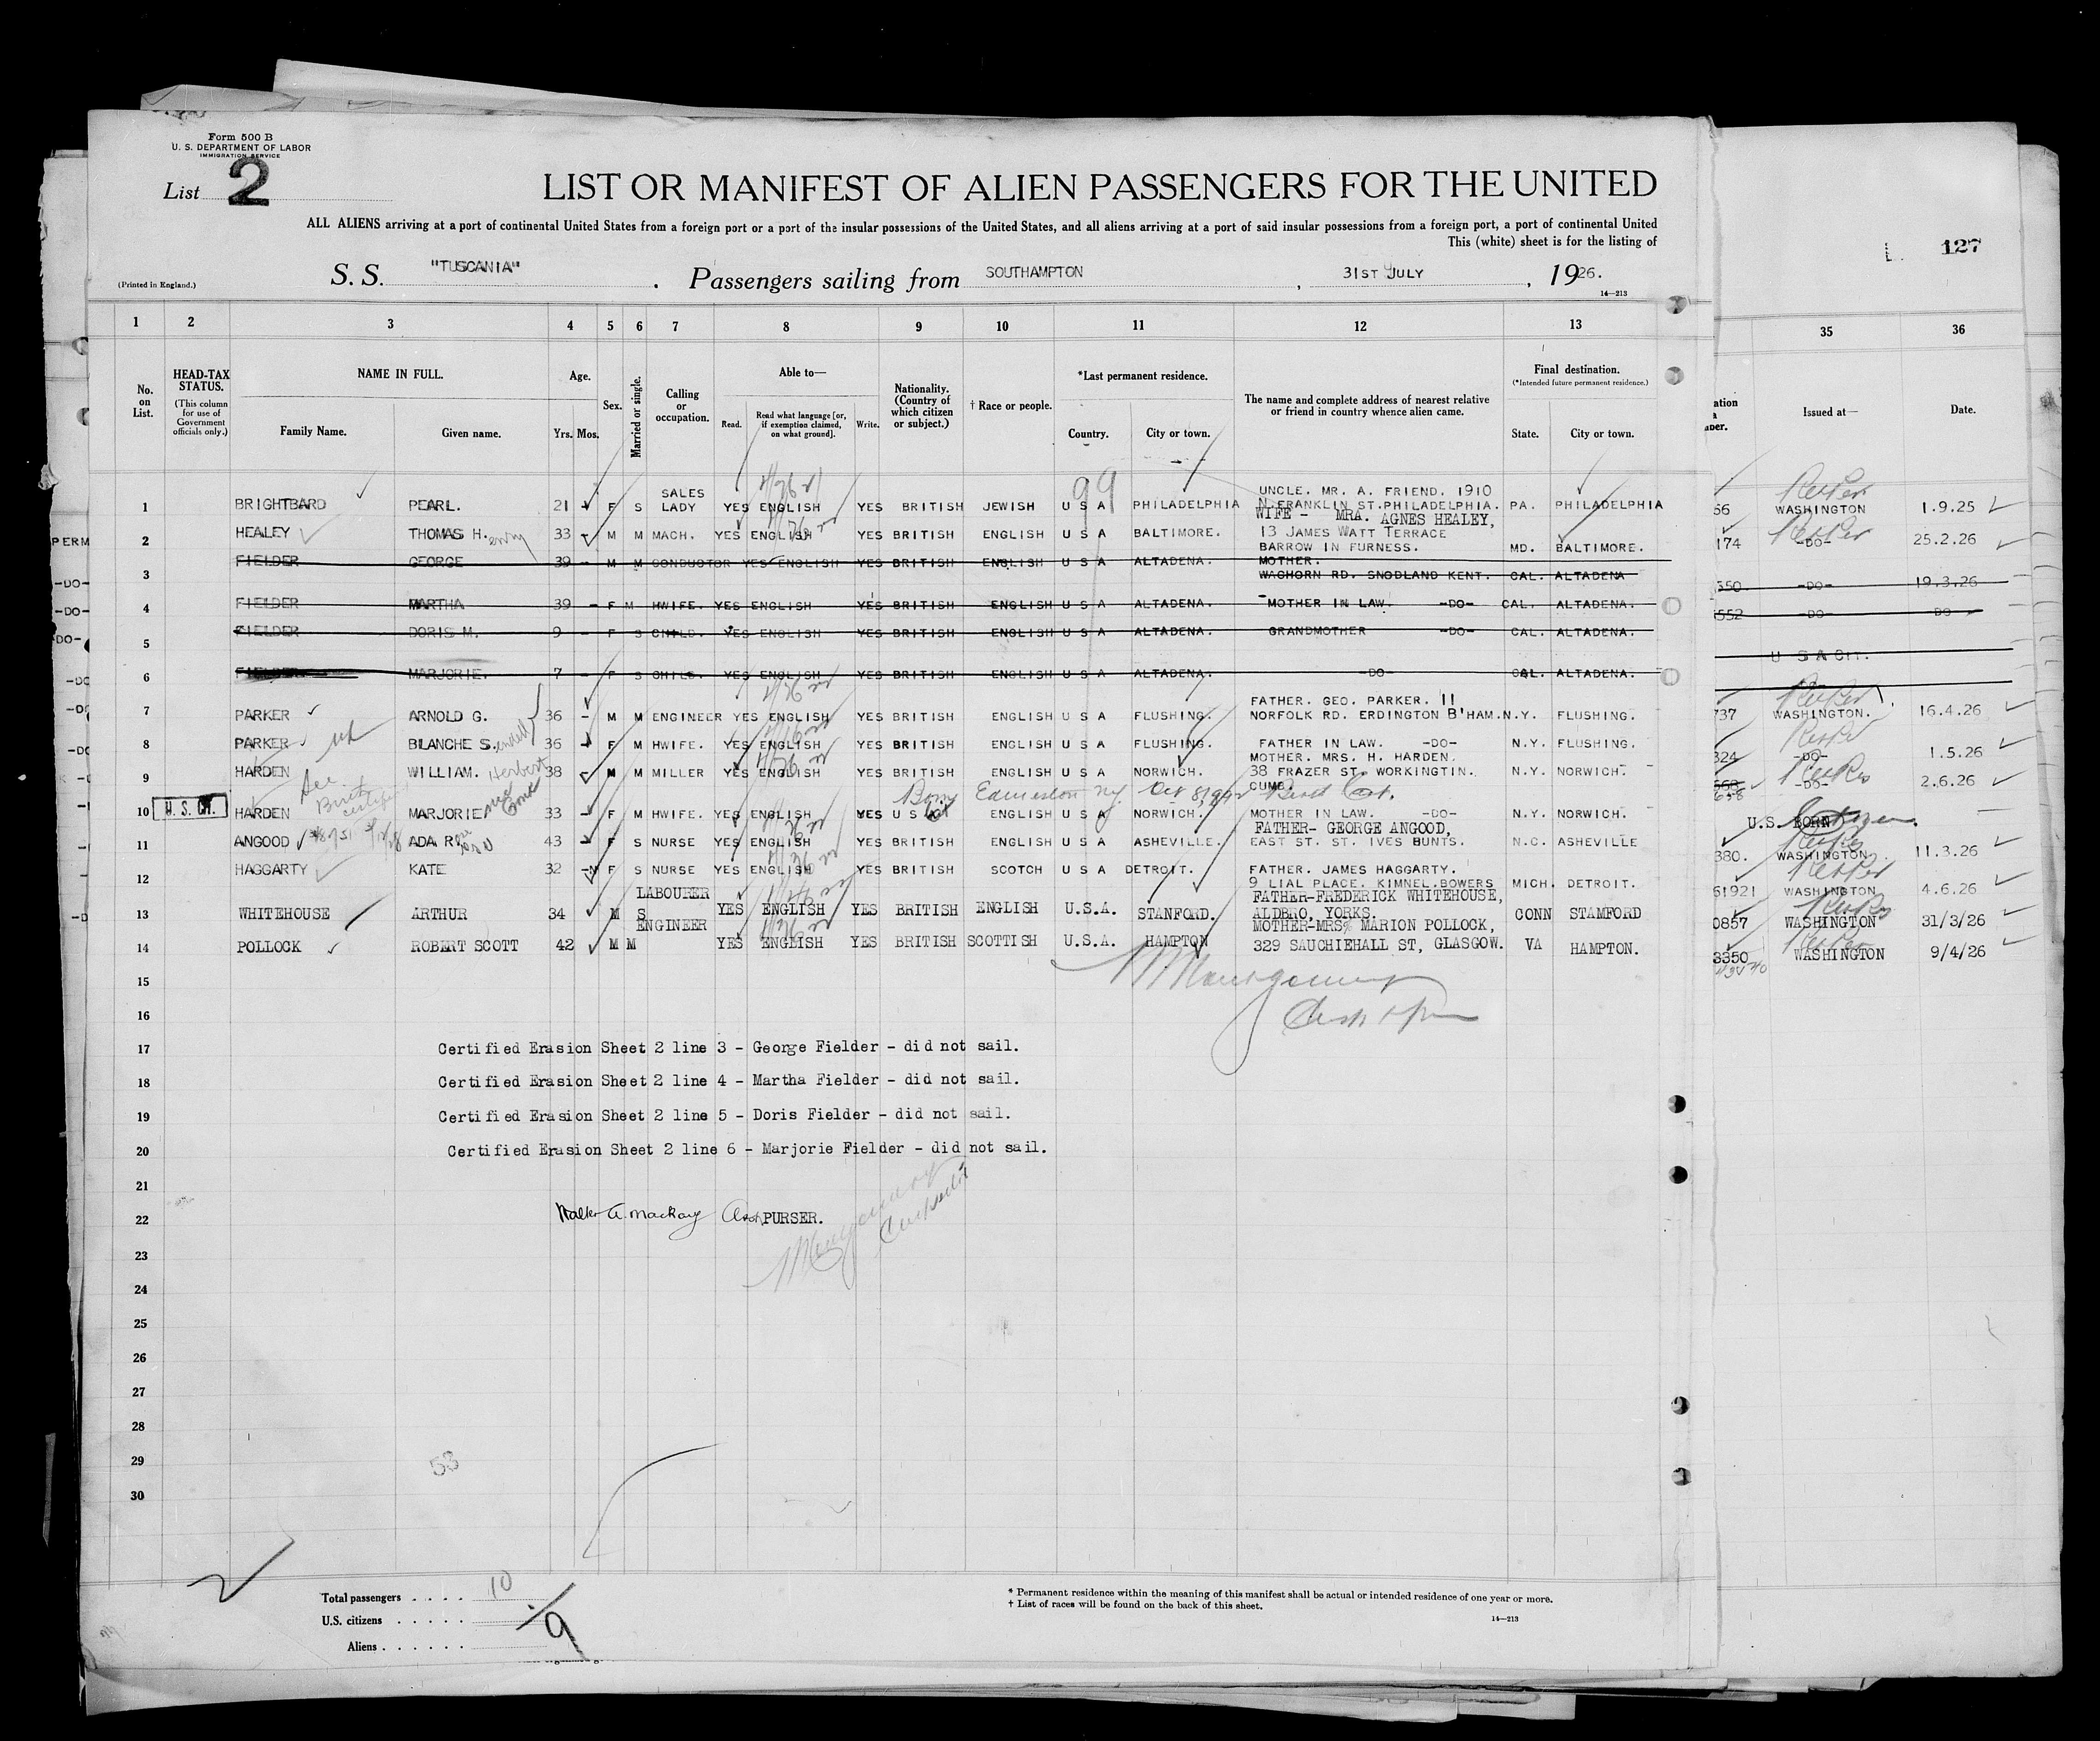 Form 500 B
U. S. DEPARTMENT OF LABOR
IMMIGRATION SERVICE
List 2
LIST OR MANIFEST OF ALIEN PASSENGERS FOR THE UNITED
ALL ALIENS arriving at a port of continental United States from a foreign port or a port of the insular possessions of the United States, and all aliens arriving at a port of said insular possessions from a foreign port, a port of continental United
This (white) sheet is for the listing of
127
(Printed in England.)
S. S. "TUSCANIA" . Passengers sailing from SOUTHAMPTON , 31ST JULY , 1926.
14—213
1 2 3 4 5 6 7 8 9 10 11 12 13 35 36
No. on List.
HEAD-TAX STATUS.
(This column for use of Government officials only.)
NAME IN FULL.
Family Name. Given name.
Age.
Yrs. Mos.
Sex.
Married or single.
Calling or occupation.
Able to—
Read. Read what language [or, if exemption claimed, on what ground]. Write.
Nationality. (Country of which citizen or subject.)
† Race or people.
*Last permanent residence.
Country. City or town.
The name and complete address of nearest relative or friend in country whence alien came.
Final destination.
(*Intended future permanent residence.)
State. City or town.
Issued at—
Date.
99
1 BRIGHTBARD PEARL. 21 - F S SALES LADY YES ENGLISH YES BRITISH JEWISH U S A PHILADELPHIA UNCLE. MR. A. FRIEND. 1910 N.FRANKLIN ST.PHILADELPHIA. PA. PHILADELPHIA 56 WASHINGTON 1.9.25
2 HEALEY THOMAS H.enry 33 - M M MACH. YES ENGLISH YES BRITISH ENGLISH U S A BALTIMORE. WIFE - MRA. AGNES HEALEY, 13 JAMES WATT TERRACE BARROW IN FURNESS. MD. BALTIMORE. 174 -DO- 25.2.26
3 FIELDER GEORGE 39 - M M CONDUCTOR YES ENGLISH YES BRITISH ENGLISH U S A ALTADENA. MOTHER. WAGHORN RD. SNODLAND KENT. CAL. ALTADENA 550 -DO- 19.3.26
4 FIELDER MARTHA 39 - F M HWIFE. YES ENGLISH YES BRITISH ENGLISH U S A ALTADENA. MOTHER IN LAW. -DO- CAL. ALTADENA. 552 -DO- DO
5 FIELDER DORIS M. 9 - F S CHILD. YES ENGLISH YES BRITISH ENGLISH U S A ALTADENA. GRANDMOTHER -DO- CAL. ALTADENA.
6 FIELDER MARJORIE. 7 - F S CHILD. YES ENGLISH YES BRITISH ENGLISH U S A ALTADENA. -DO- CAL. ALTADENA. U S A CIT.
7 PARKER ARNOLD G. 36 - M M ENGINEER YES ENGLISH YES BRITISH ENGLISH U S A FLUSHING. FATHER. GEO. PARKER. 11 NORFOLK RD. ERDINGTON B'HAM. N.Y. FLUSHING. 737 WASHINGTON. 16.4.26
8 PARKER BLANCHE S. 36 - F M HWIFE. YES ENGLISH YES BRITISH ENGLISH U S A FLUSHING. FATHER IN LAW. -DO- N.Y. FLUSHING. 324 -DO- 1.5.26
9 HARDEN WILLIAM. Herbert 38 M M MILLER YES ENGLISH YES BRITISH ENGLISH U S A NORWICH. MOTHER. MRS. H. HARDEN. 38 FRAZER ST. WORKINGTIN. CUMB. N.Y. NORWICH. 668 658 -DO- 2.6.26
See Birth certificate
Born Edmeston NY Oct 8, 1892 Birth Cert.
10 U.S. CIT. HARDEN MARJORIE 33 - F M HWIFE. YES ENGLISH YES U S A Cit ENGLISH U S A NORWICH. MOTHER IN LAW. -DO- N.Y. NORWICH. U.S. BORN Citizen.
11 ANGOOD ADA R 43 - F S NURSE YES ENGLISH YES BRITISH ENGLISH U S A ASHEVILLE. FATHER- GEORGE ANGOOD, EAST ST. ST. IVES BUNTS. N.C. ASHEVILLE 380. WASHINGTON. 11.3.26
12 HAGGARTY KATE 32 - F S NURSE YES ENGLISH YES BRITISH SCOTCH U S A DETROIT. FATHER. JAMES HAGGARTY. 9 LIAL PLACE. KIMNEL.BOWERS MICH. DETROIT. 61921 WASHINGTON 4.6.26
13 WHITEHOUSE ARTHUR 34 M S LABOURER YES ENGLISH YES BRITISH ENGLISH U.S.A. STANFORD. FATHER-FREDERICK WHITEHOUSE, ALDBRO, YORKS. CONN STAMFORD 0857 WASHINGTON 31/3/26
14 POLLOCK ROBERT SCOTT 42 M M ENGINEER YES ENGLISH YES BRITISH SCOTTISH U.S.A. HAMPTON MOTHER-MRS. MARION POLLOCK, 329 SAUCHIEHALL ST, GLASGOW. VA HAMPTON. 3350 WASHINGTON 9/4/26
15
16
17 Certified Erasion Sheet 2 line 3 - George Fielder - did not sail.
18 Certified Erasion Sheet 2 line 4 - Martha Fielder - did not sail.
19 Certified Erasion Sheet 2 line 5 - Doris Fielder - did not sail.
20 Certified Erasion Sheet 2 line 6 - Marjorie Fielder - did not sail.
21
22 Walter A. Mackay Asst. PURSER.
23
24
25
26
27
28
29 53
30
Total passengers . . . . 10
U.S. citizens . . . . . 1
Aliens . . . . . . 9
* Permanent residence within the meaning of this manifest shall be actual or intended residence of one year or more.
† List of races will be found on the back of this sheet.
14—213